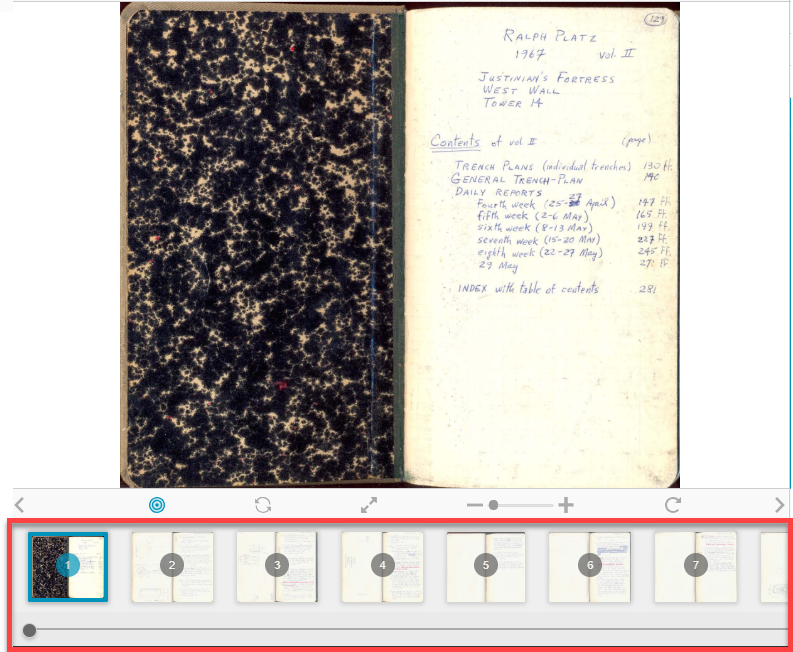 129
RALPH PLATZ
1967 vol. II
JUSTINIAN'S FORTRESS
WEST WALL
TOWER 14
Contents of vol II (page)
TRENCH PLANS (individual trenches) 130 ff.
GENERAL TRENCH-PLAN 140
DAILY REPORTS
Fourth week (25-27 April) 147 ff.
fifth week (2-6 May) 165 ff.
sixth week (8-13 May) 199 ff.
seventh week (15-20 May) 227 ff.
eighth week (22-27 May) 245 ff.
29 May ff.
INDEX with table of contents 281
1 2 3 4 5 6 7